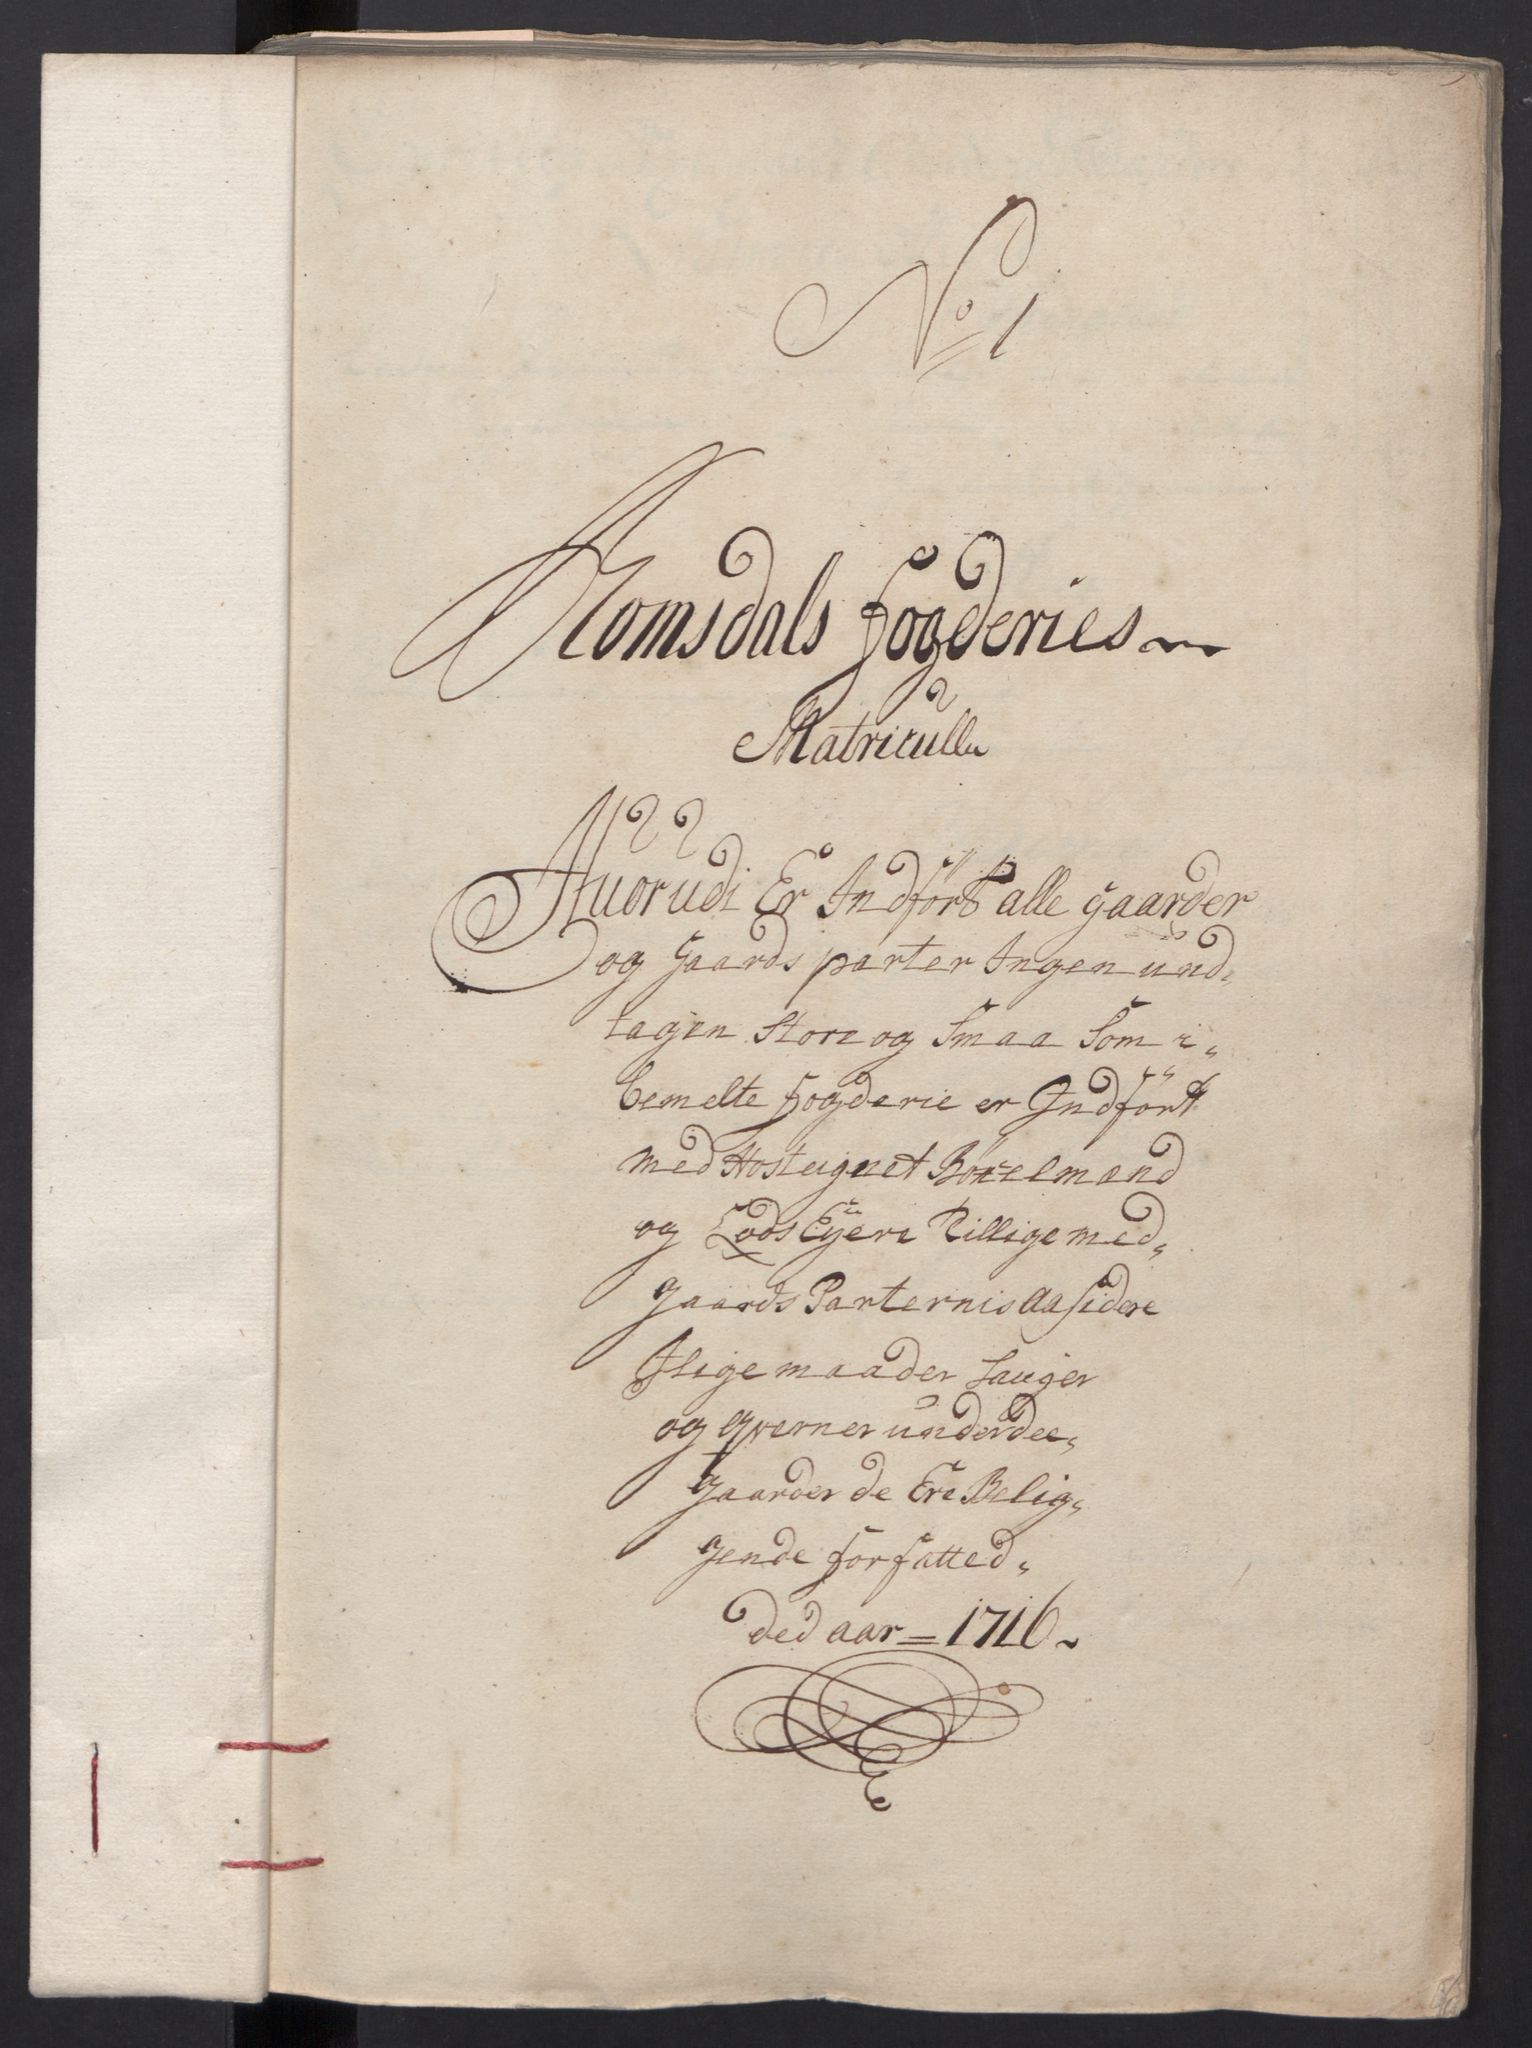 No 1
Romsdals fogderies
Matricull
Huorudi Er Indført alle gaarder
og gaards parter Ingen und,
tagen Store og Smaa Som i,
bemelte fogderie er Indført
med Hosteignet Böxelmand
og Godseyere Tillige med,
gaards Parternis Aasidere
Ilige maader Sauger
og qverner under dee,
gaarder de Ere Belig,
gende forfatted,
ded aar = 1716